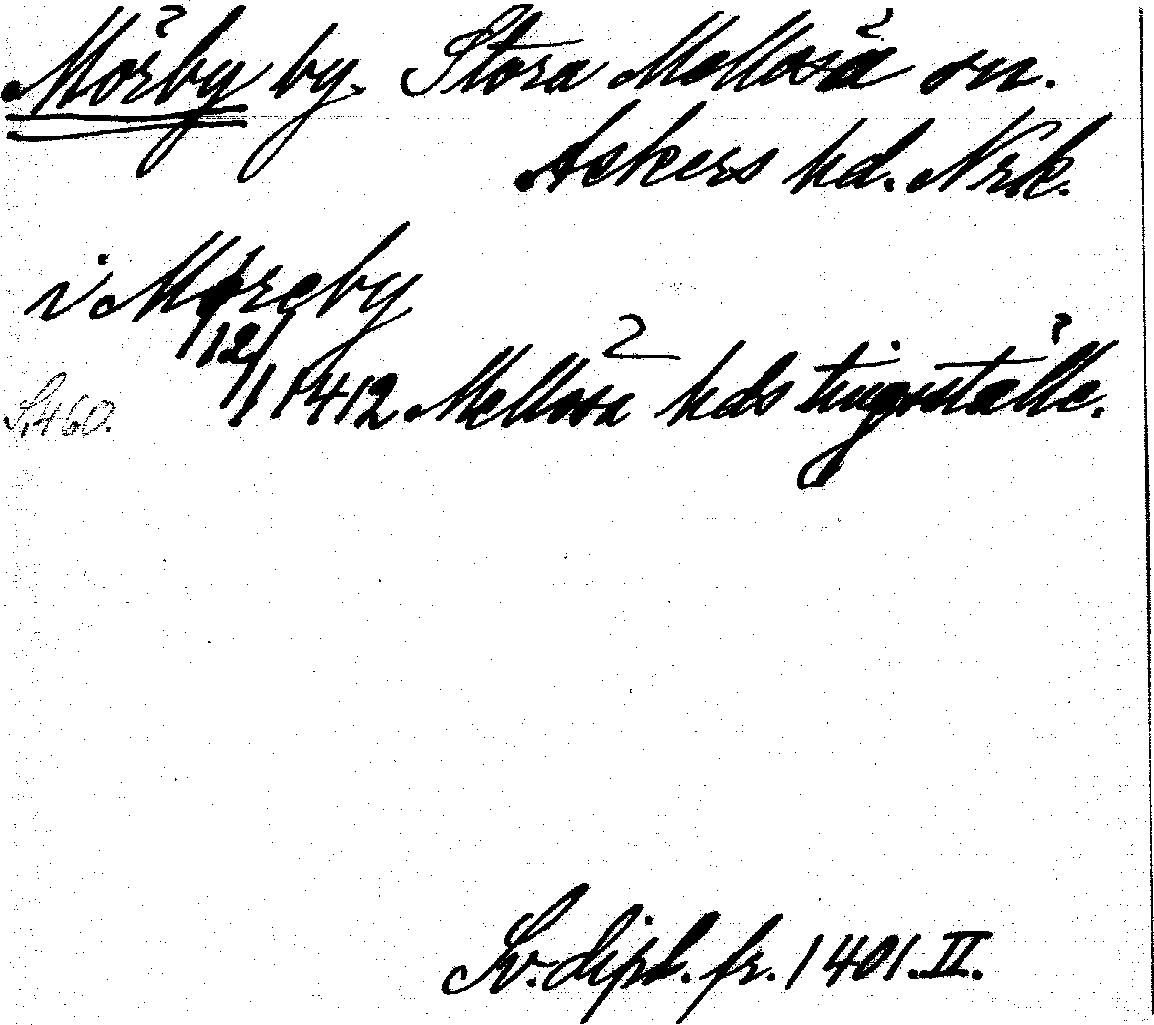 Mörby by. Stora Mellösa sn.
Askers hd. Nrk.
i Møreby
12/1 1412 Mellosa hds tingställe.
S. 460.
Sv. dipl. fr. 1401. II.